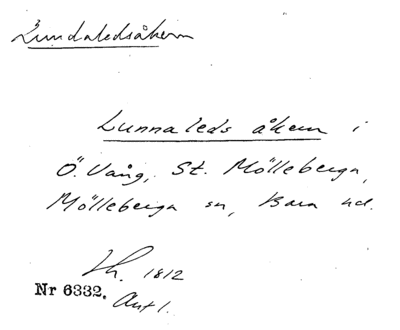 Lundaledsåkern
Lunnaleds åkern i
Ö. Vång, St. Mölleberga,
Mölleberga sn, Bara hd.
Lh. 1812
Nr 6332. Ant 1.